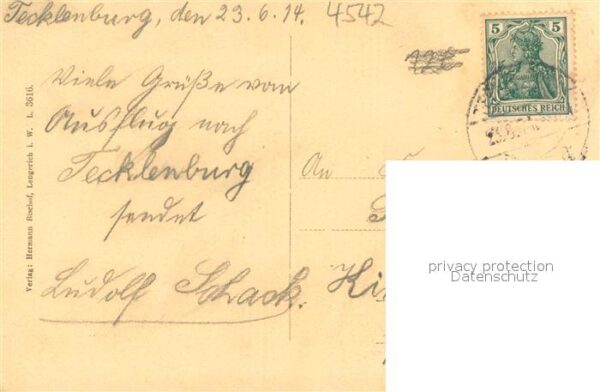 Tecklenburg, den 23.6.14. 4542
5 5
DEUTSCHES REICH
Viele Grüße vom
Ausflug nach
Tecklenburg
sendet
Ludolf Schack.
An
Verlag: Hermann Bischof, Lengerich i. W. L. 3616.
privacy protection
Datenschutz